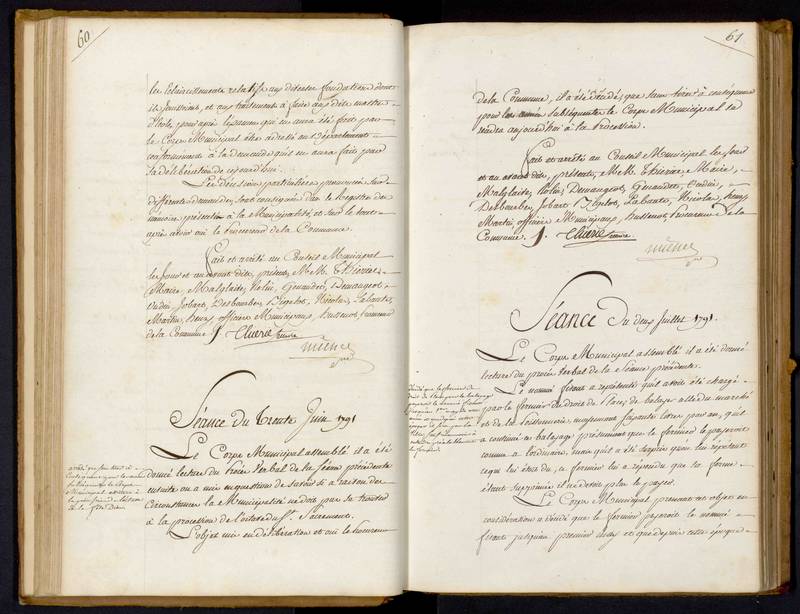 60
les Eclaircissements relatifs aux diverses fondations dont
ils jouissent, et aux traitements à faire aux dits maitres
d'Ecole, pour après l'examen qui en aura été fait par
le Corps Municipal être adressé au Département
conformément à la demande qu'il en aura fait par
sa délibération de cejourd'hui.
Les décisions particulières prononcées sur
différentes demandes, sont consignées sur le Registre des
mémoires présentés à la Municipalité, et sur le tout
après avoir oui le Procureur de la Commune.
Fait et arrêté au Conseil Municipal
les Jour et an avant dits, présents, M.M. Thierier
Maire, Malglaite, Nolin, Genaudet, Demaugeot
Oudin, Jobart, Desbarbes, Fligelot, Nicolas, Labauste,
Martin, Henry officiers Municipaux, Bussenot, Procureur
de la Commune.
Séance du Trente Juin 1791
Le Corps Municipal assemblé, il a été
donné lecture du Procès Verbal de la séance précédente
ensuite on a mis en question de savoir si à raison des
Circonstances la Municipalité ne doit pas se trouver
à la procession de l'octave du St. Sacrement.
L'objet mis en délibération et oui le Procureur
61
de la Commune, il a été décidé, que sans tirer à conséquence
pour les années subséquentes le Corps Municipal se
rendra aujourd'hui à la Procession.
Fait et arrêté au Conseil Municipal les Jour
et an avant dits, présents, M.M. Thierier, Maire,
Malglaite, Nolin, Demaugeot, Genaudet, Oudin,
Desbarbes, Jobart, Fligelot, Labauste, Nicolas, Henry
Martin, officiers Municipaux, Bussenot, Procureur de la
Commune.
Séance Du deux Juillet 1791.
Le Corps Municipal assemblé il a été donné
lecture du procès verbal de la Séance précédente.
Le nommé Férant a représenté qu'il avoit été chargé
par le fermier du droit de Place, de balayer allée du marché
et de la Poissonnerie, moyennant soixante livres par an, qu'il
a continué ce balayage présumant que le fermier le payeroit
comme à l'ordinaire, mais qu'il a été surpris qu'en lui répétant
ce qui lui étoit dû, ce fermier lui a répondu que sa ferme
étant supprimée il ne devoit plus le payer.
Le Corps Municipal prenant cet objet en
considération a décidé que le fermier payeroit le nommé
Férant jusqu'au premier Mars et que depuis cette époque